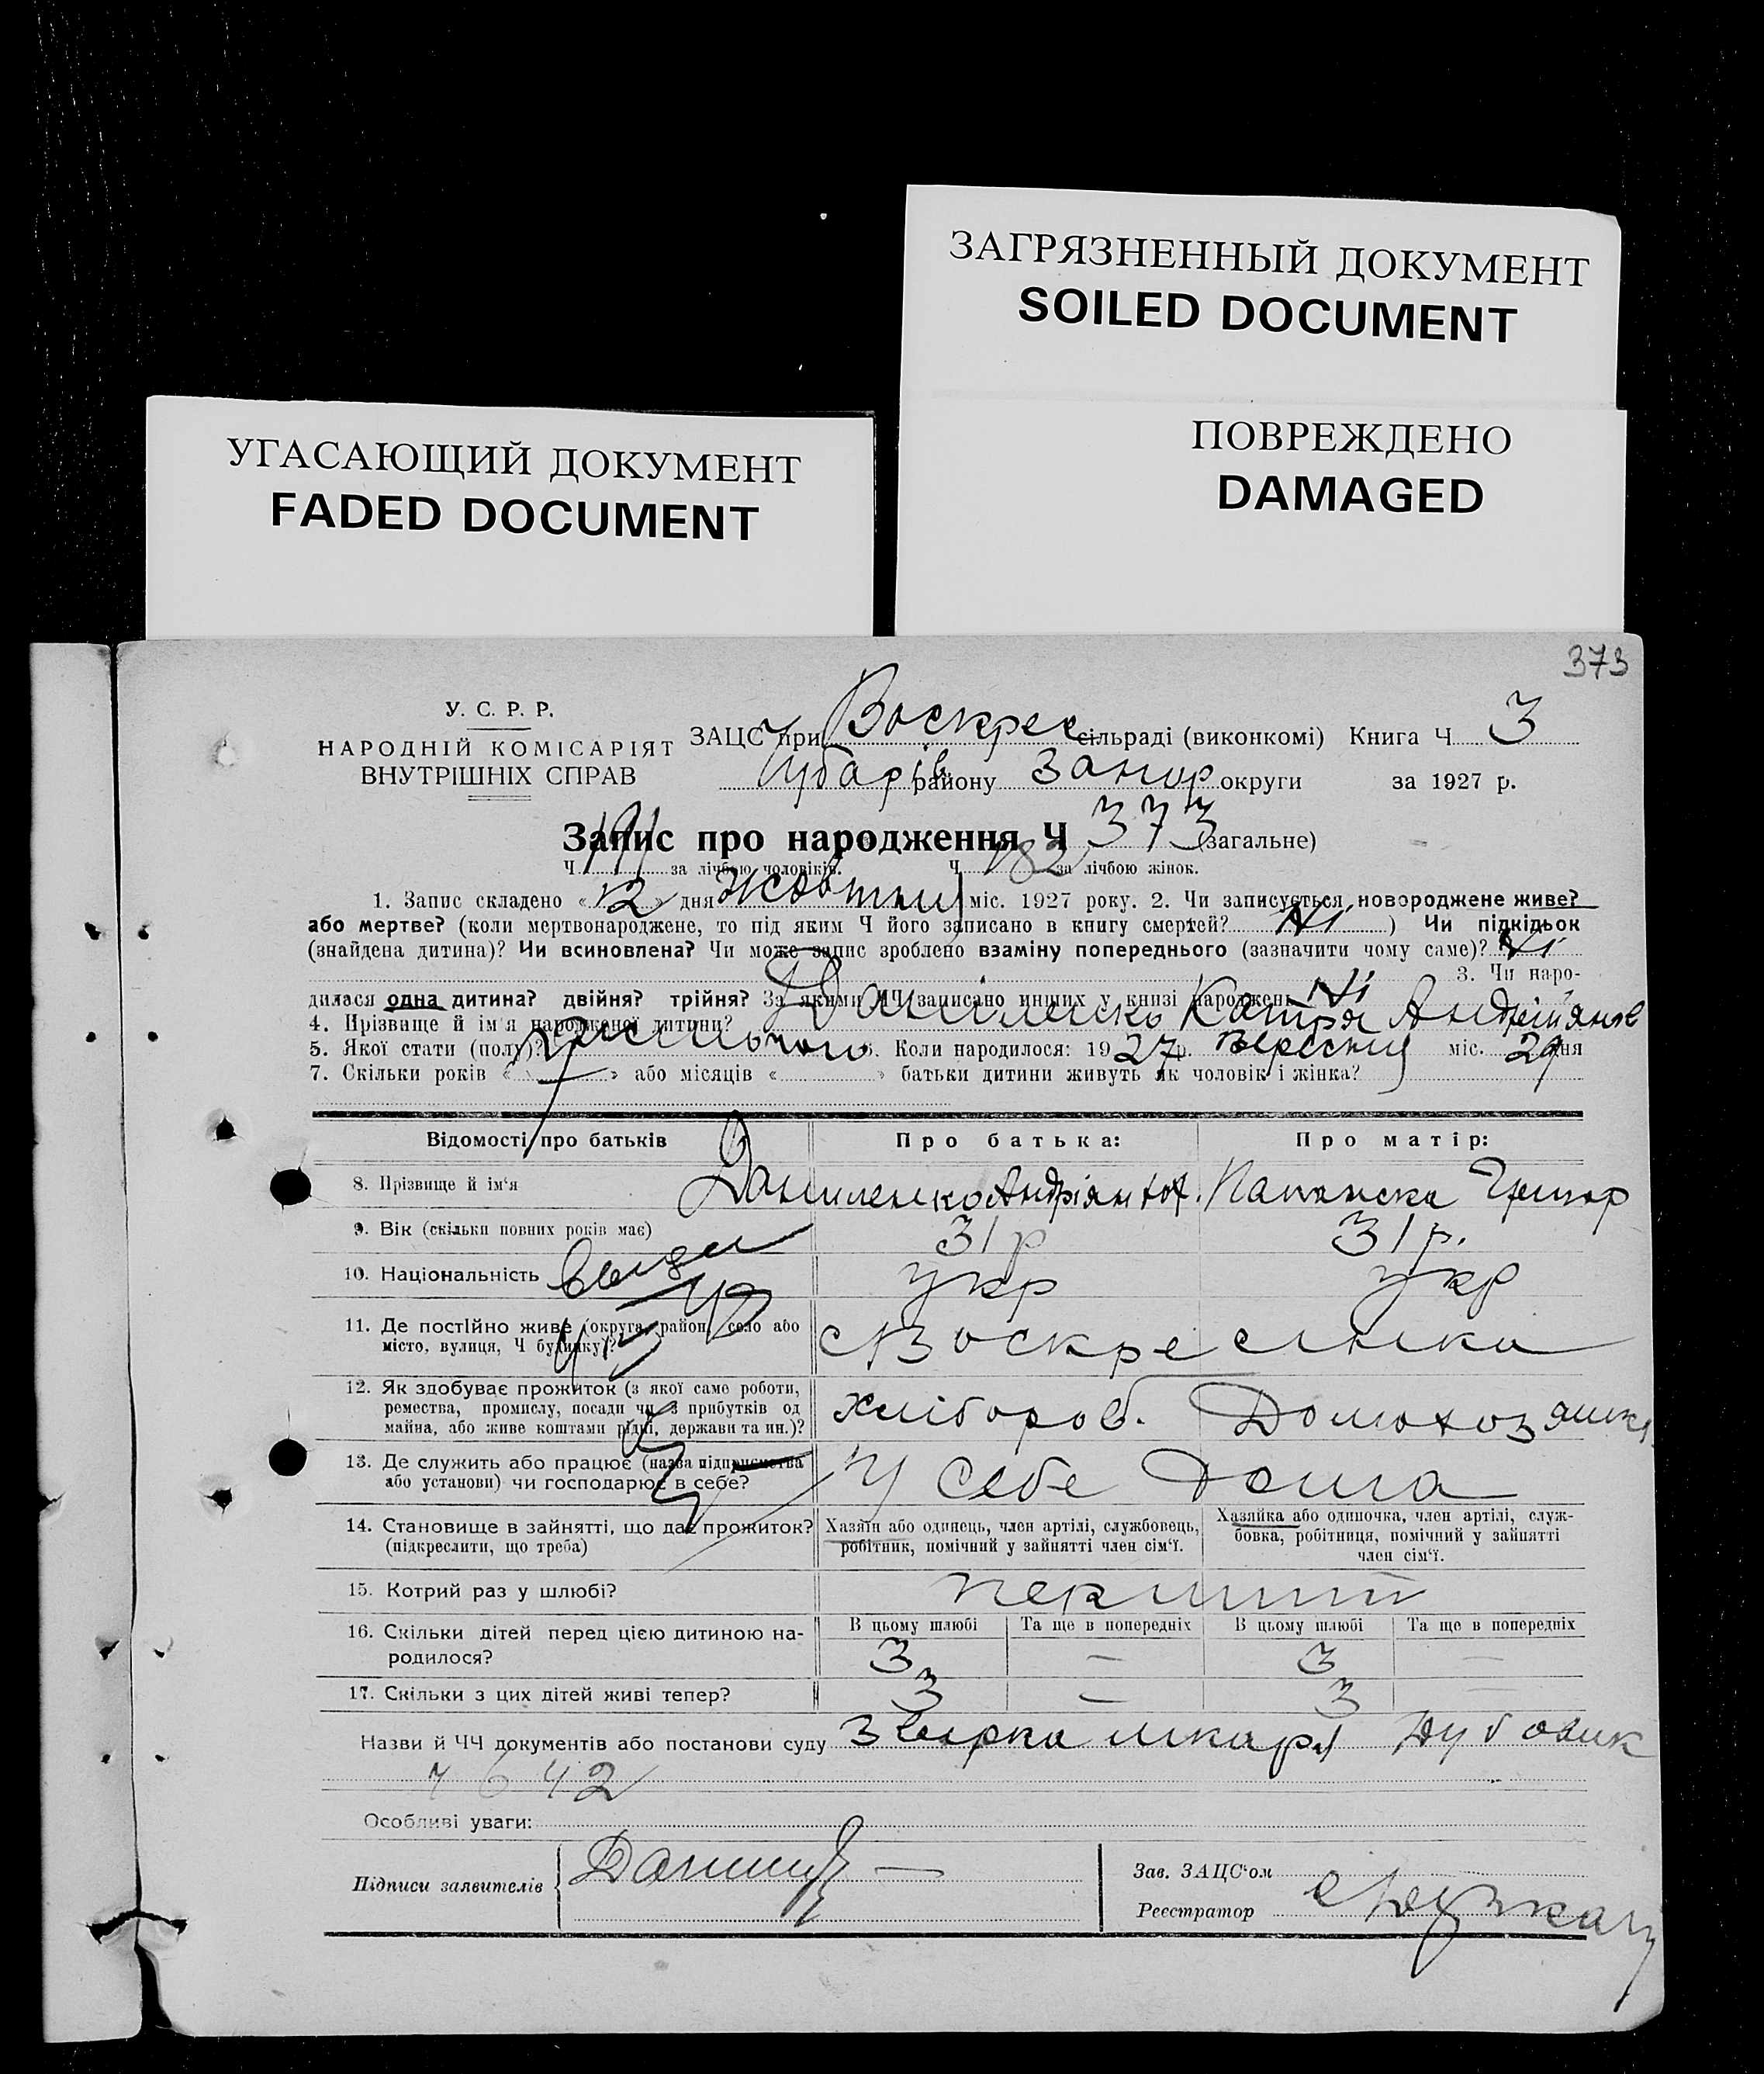 ЗАГРЯЗНЕННЫЙ ДОКУМЕНТ
SOILED DOCUMENT
ПОВРЕЖДЕНО
DAMAGED
УГАСАЮЩИЙ ДОКУМЕНТ
FADED DOCUMENT
373
У. С. Р. Р.
НАРОДНІЙ КОМІСАРІЯТ
ВНУТРІШНІХ СПРАВ
ЗАЦС при Воскрес сільраді (виконкомі) Книга Ч 3
Чубарів району Запор округи за 1927 р.
Запис про народження Ч 373 (загальне)
Ч 191 за лічбою чоловіків. Ч 182 за лічбою жінок.
1. Запис складено «12» дня Жовтня міс. 1927 року. 2. Чи записується новороджене живе?
або мертве? (коли мертвонароджене, то під яким Ч його записано в книгу смертей? Ні ) Чи підкідьок
(знайдена дитина)? Чи всиновлена? Чи може запис зроблено взаміну попереднього (зазначити чому саме)? Ні
3. Чи наро-
дилася одна дитина? двійня? трійня? За якими ЧЧ записано инших у книзі народжень Ні
4. Прізвище й ім'я народженої дитини? Даниленко Катря Андріянов
5. Якої стати (полу)? жіночого 6. Коли народилося: 1927 р. Вересня міс. 29 дня
7. Скільки років « » або місяців « » батьки дитини живуть як чоловік і жінка?
Відомості про батьків Про батька: Про матір:
8. Прізвище й ім'я Даниленко Андріян
9. Вік (скільки повних років має) 31 р 31 р.
10. Національність укр укр
11. Де постійно живе (округа, район, село або
місто, вулиця, Ч будинку)? с Воскресенка
12. Як здобуває прожиток (з якої саме роботи,
ремества, промислу, посади чи з прибутків од
майна, або живе коштами рідні, держави та ин.)? хлібороб. Домохозяйка
13. Де служить або працює (назва підприємства
або установи) чи господарює в себе? У себе дома
14. Становище в зайнятті, що дає прожиток?
(підкреслити, що треба)
Хазяїн або одинець, член артілі, службовець,
робітник, помічний у зайнятті член сім'ї.
Хазяйка або одиночка, член артілі, служ-
бовка, робітниця, помічний у зайнятті
член сім'ї.
15. Котрий раз у шлюбі? перший
16. Скільки дітей перед цією дитиною на-
родилося?
В цьому шлюбі Та ще в попередніх В цьому шлюбі Та ще в попередніх
3 — 3 —
17. Скільки з цих дітей живі тепер? 3 — 3 —
Назви й ЧЧ документів або постанови суду
642
Особливі уваги:
Підписи заявителів
Зав. ЗАЦС'ом
Реєстратор